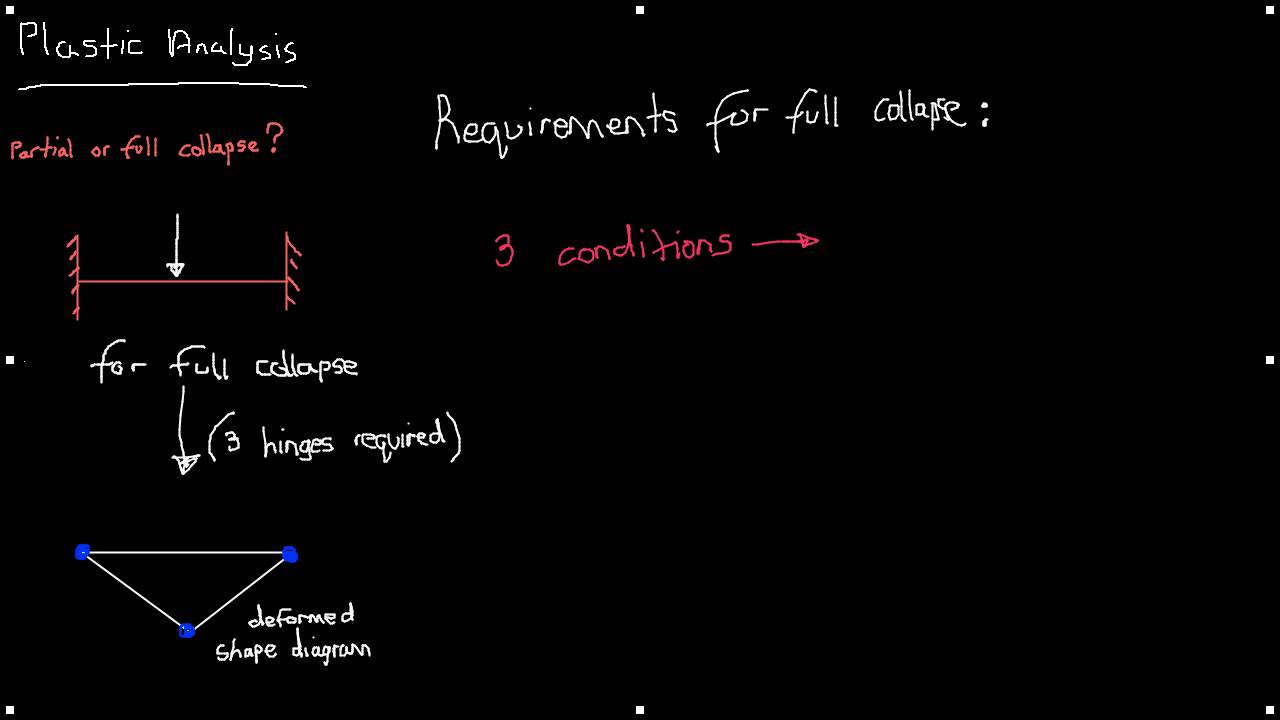 Plastic Analysis
Partial or full collapse?
for full collapse
(3 hinges required)
deformed
shape diagram
Requirements for full collapse:
3 conditions →